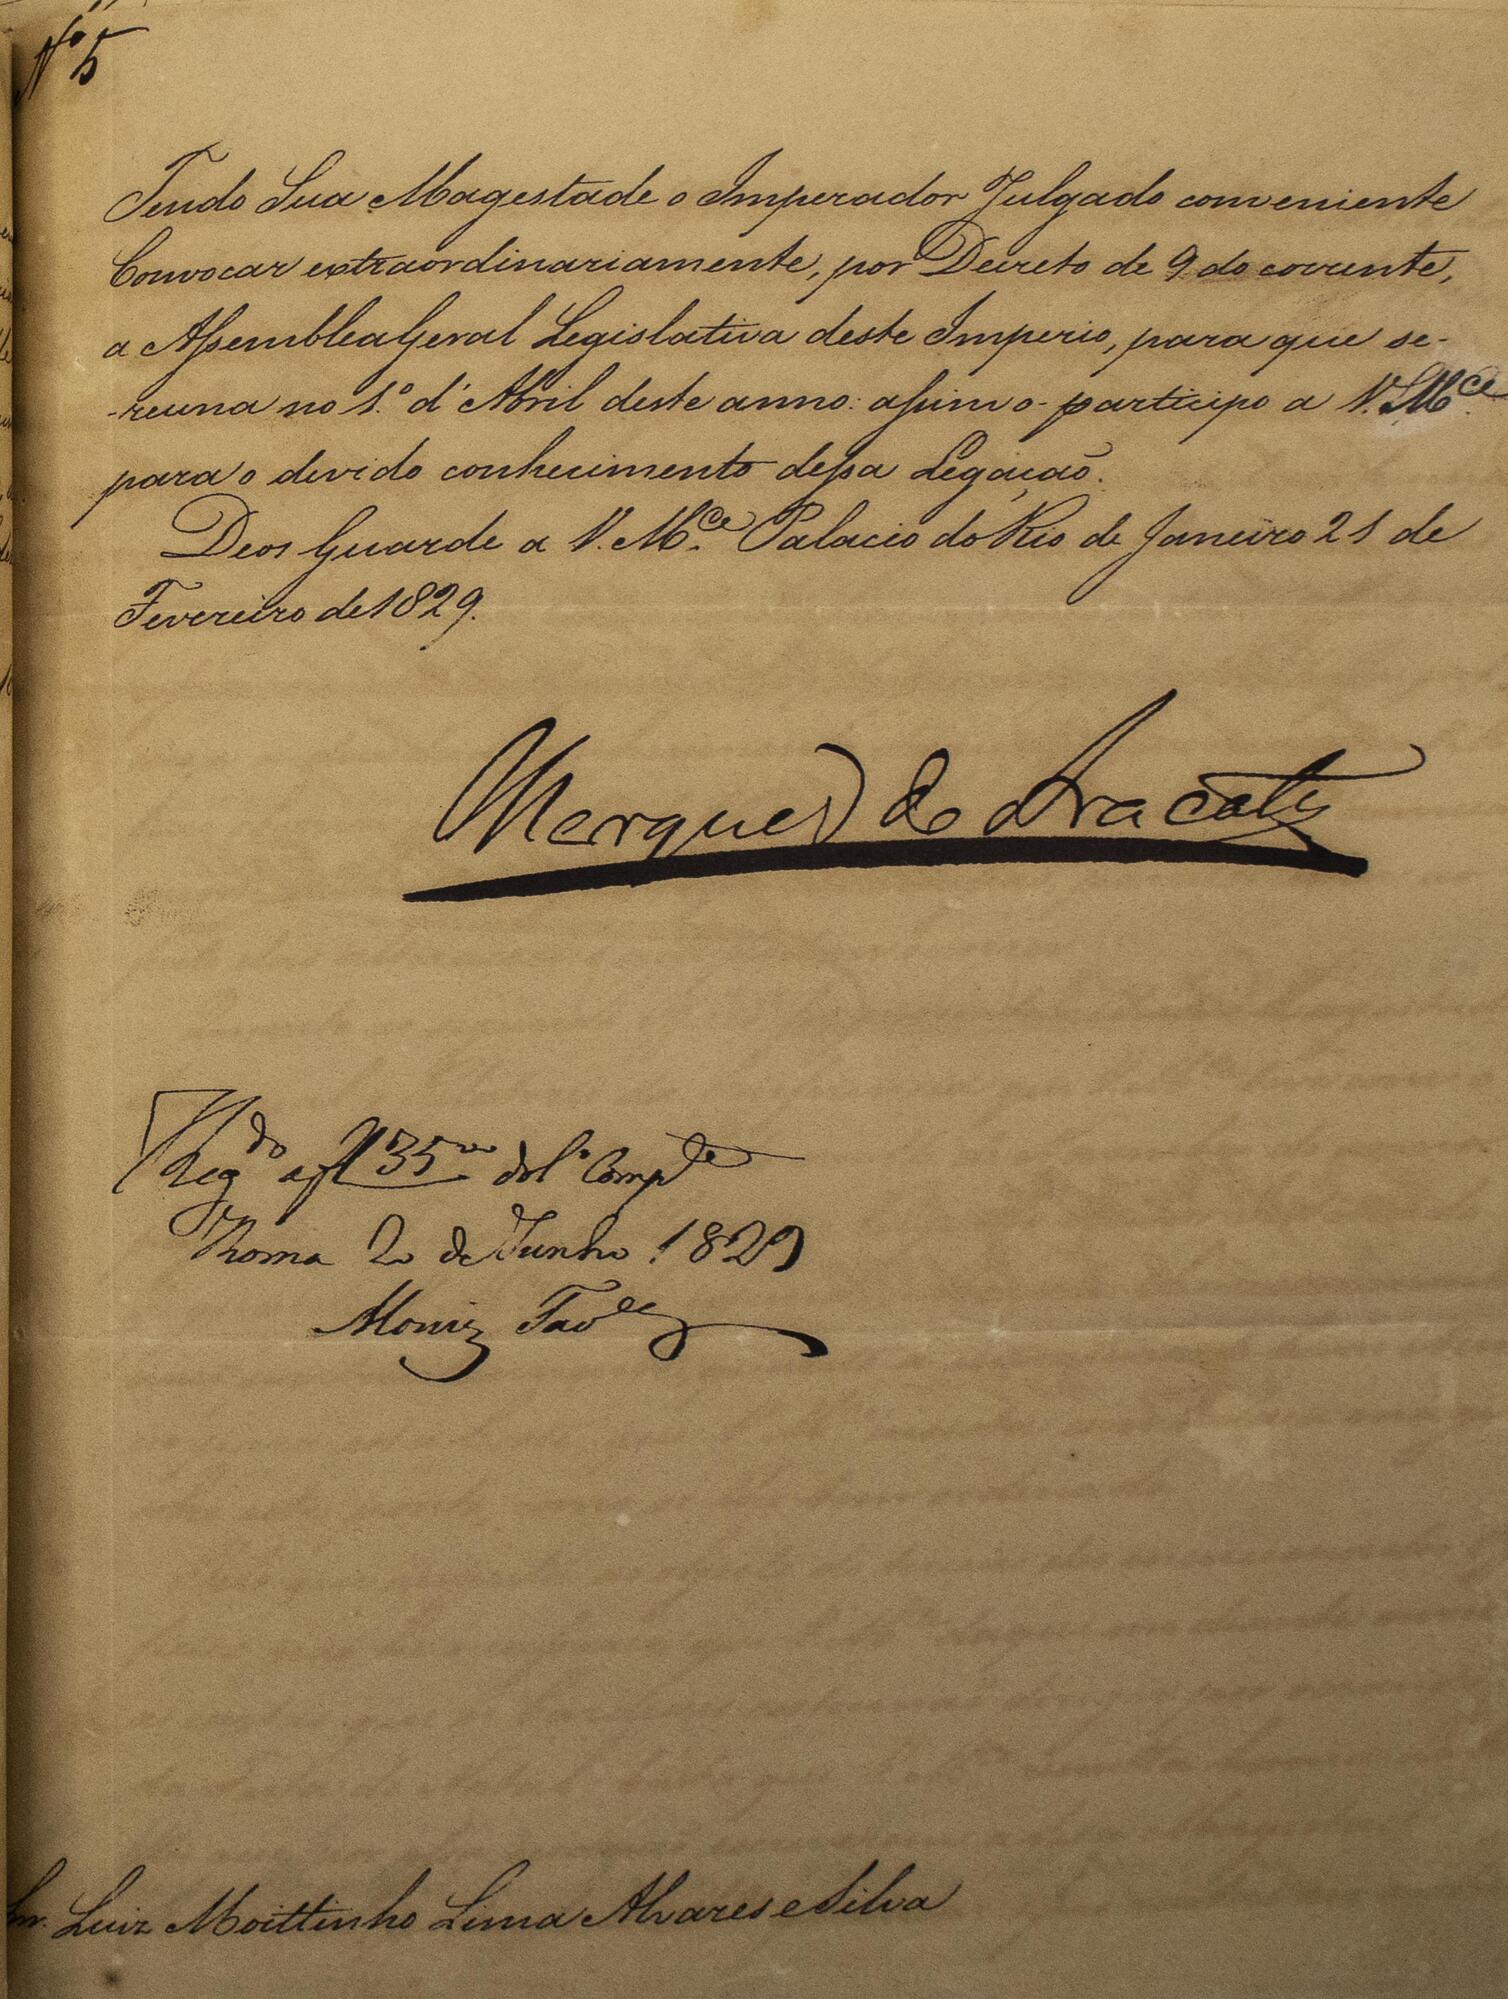 Nº 5
Tendo Sua Magestade o Imperador Julgado conveniente
Convocar extraordinariamente, por Decreto de 9 do corrente,
a Assemblea Geral Legislativa deste Imperio, para que se-
-reuna no 1.º d'Abril deste anno: assim o participo a V. M.ce
para o devido conhecimento dessa Legação.
Deos Guarde a V. M.ce Palacio do Rio de Janeiro 21 de
Fevereiro de 1829.
Marques de Aracaty
Reg.do a fl 35 do L.º Comp.te
Roma 2 de Junho 1829
Moniz Tav.es
Snr. Luiz Moittinho Lima Alvares e Silva